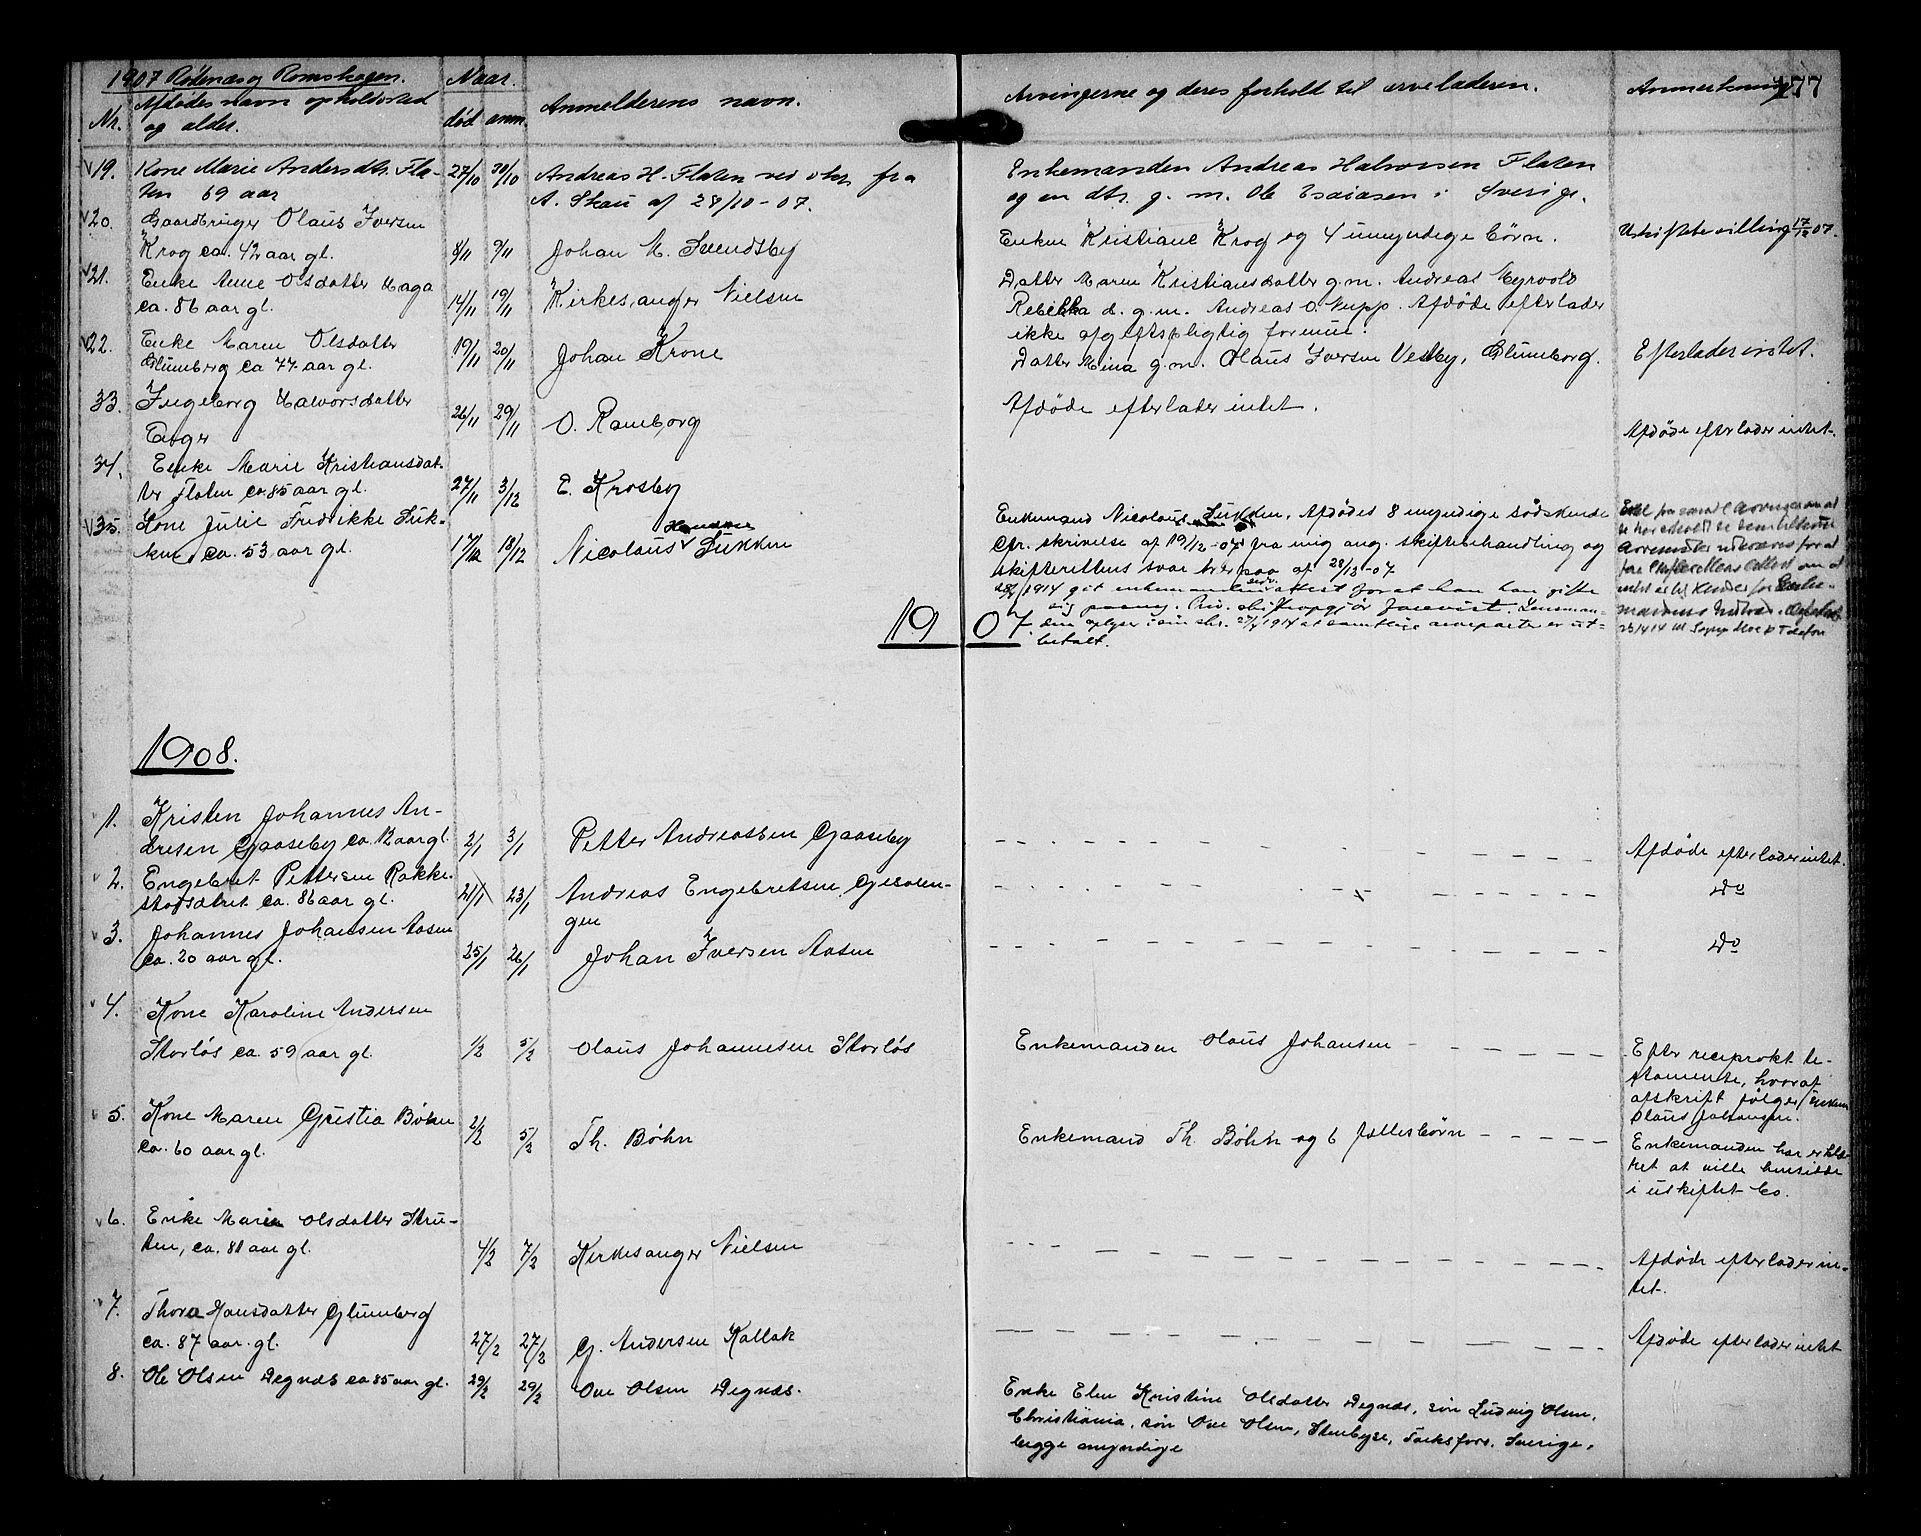 1907 Rødenæs og Romskogen.
Naar.
177
Nr.
Afdødes navn opholdssted
og alder.
død
anm.
Anmelderens navn.
Arvingerne og deres forhold til arveladeren.
Anmerkning
19. Kone Marie Andersdtr. Fla-
ten 69 aar
27/10 30/10
Andreas H. Flaten ved skr. fra
A. Skau af 28/10-07.
Enkemanden Andreas Halvorsen Flaten
og en dtr. g. m. Ole Esaiasen i Sverige.
20. Gaardbruger Olaus Iversen
Krog ca. 42 aar gl.
8/11 9/11
Johan M. Svendsby
Enken Kristiane Krog og 4 umyndige børn.
Uskiftebevilling 17/12 07.
21. Enke Anne Olsdatter Haga
ca. 86 aar gl.
14/11 19/11
Kirkesanger Nielsen
Datter Maren Kristiansdatter g.m. Andreas Myrvold
Rebekka d. g.m. Andreas O. Nupp. Afdøde efterlader
ikke afgiftspligtig formue.
22. Enke Maren Olsdatter
Glumberg ca 77 aar gl.
19/11 20/11
Johan Krone
Datter Mina g.m. Olaus Iversen Vestby, Glumberg.
Efterlader intet.
33. Ingeborg Halvorsdatter
Enger
26/11 29/11
O. Ramborg
Afdøde efterlader intet.
Afdøde efterlader intet.
34. Enke Marie Kristiansdat-
ter Flaten ca. 85 aar gl.
27/11 3/12
E. Krosby
35. Kone Julie Fredrikke Suk-
ken ca. 53 aar gl.
17/12 18/12
Nicolaus Hansen Sukken
Enkemand Nicolaus Sukken. Afdødes 8 myndige sødskende
Cfr. skrivelse af 19/12-07 fra mig ang. skiftebehandling og
skifterettens svar herpaa af 28/12-07
1914 git enkemanden attest for at han kan gifte
sig paany. Priv. skifteopgjør forevist. Lensman-
den oplyser i sin skr. 27/4 1914 at samtlige arveparter er ut-
betalt.
1907
1908.
1. Kristen Johannes An-
dresen Gaaseby ca. 12 aar gl.
2/1 3/1
Petter Andreassen Gaaseby
Afdøde efterlader intet.
2. Engebret Pettersen Rakke-
stadsætret ca. 86 aar gl.
21/1 23/1
Andreas Engebretsen
gen
Do
3. Johannes Johansen Aasen
ca. 20 aar gl.
25/1 26/1
Johan Iversen Aasen
Do
4. Kone Karoline Andersen
Storløs ca. 59 aar gl.
1/2 5/2
Olaus Johannesen Storløs
Enkemanden Olaus Johansen
Efter reciprokt te-
stamente, hvoraf
afskrift følger
Olaus Johansen.
5. Kone Maren Gustia Bøhn
ca. 60 aar gl.
2/2 5/2
Th. Bøhn
Enkemand Th. Bøhn og 6 fællesbørn
Enkemanden har erklæ-
ret at ville hensidde
i uskiftet bo.
6. Enke Maria Olsdatter Stru-
ten, ca. 81 aar gl.
4/2 7/2
Kirkesanger Nielsen
Afdøde efterlader in-
tet.
7. Thora Hansdatter Glumberg
ca. 87 aar gl.
27/2 27/2
G. Andersen Kallak
Afdøde efterlader intet
8. Ole Olsen Degnæs ca 85 aar gl.
29/2 29/2
Ove Olsen Degnæs.
Enke Elen Kristine Olsdatter Degnæs, søn Ludvig Olsen,
Christiania, søn Ove Olsen, Stenbyse, Töcksfors, Sverige,
begge myndige